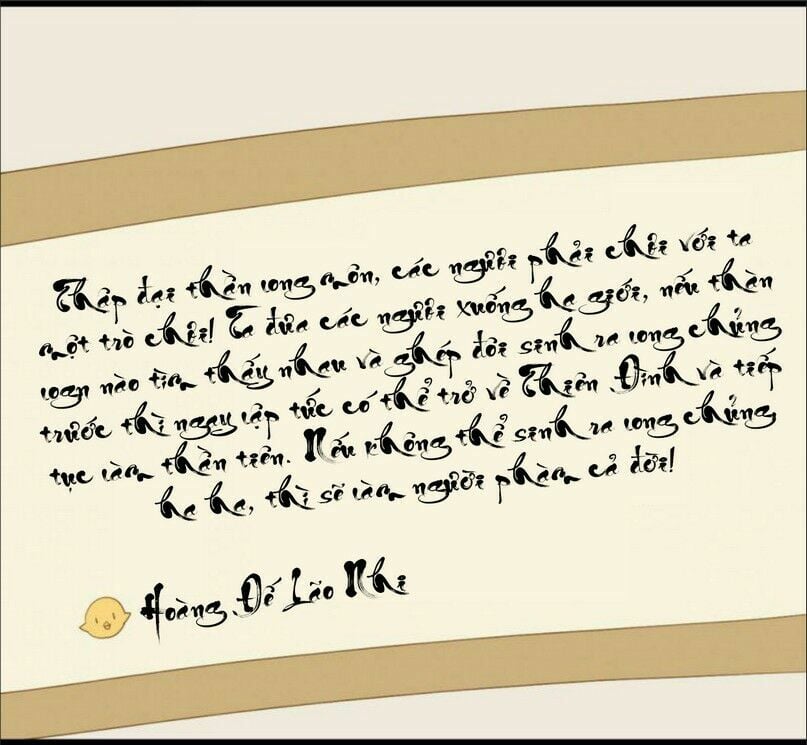 Thập đại thần long môn, các người phải chơi với ta
một trò chơi! Ta đưa các người xuống hạ giới, nếu thần
loan nào tìm thấy nhau và ghép đôi sinh ra long chủng
trước thì ngay lập tức có thể trở về Thiên Đình và tiếp
tục làm thần tiên. Nếu không thể sinh ra long chủng,
ha ha, thì sẽ làm người phàm cả đời!
Hoàng Đế Lão Nhi